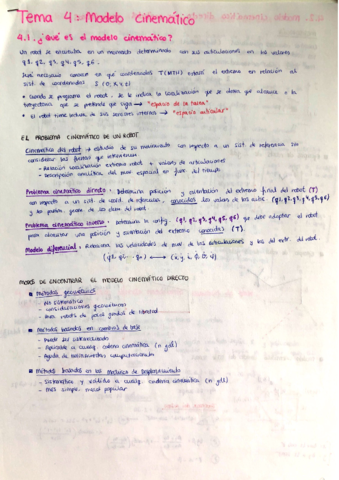 Tema 4: Modelo Cinemático
4.1. ¿Qué es el modelo cinemático?
Un robot se encuentra en un momento determinado con sus articulaciones en los valores
q1, q2, q3, q4, q5, q6.
T(MTH) estará el extremo en relación al
sist. de coordenadas S (0, X, Y, Z)
• Cuando se programa el robot se le indica la localización que se desea que alcance o la
trayectoria que se pretende que siga → "espacio de la tarea"
• El robot tiene lectura de sus sensores internos → "espacio articular"
EL PROBLEMA CINEMÁTICO DE UN ROBOT
Cinemática del robot → estudio de su movimiento con respecto a un sist. de referencia sin
considerar las fuerzas que intervienen
- Relación localización extremo robot + valores de articulaciones
- Descripción analítica del mov. espacial en func. del tiempo
Problema cinemático directo: Determina posición y orientación del extremo final del robot (T)
con respecto a un sist. de coord. de referencia, conocidos los valores de las articu. (q1, q2, q3, q4, q5, q6)
y los parám. geom. de los elem. del robot.
Problema cinemático inverso: Determina la config. (q1, q2, q3, q4, q5, q6) que debe adoptar el robot
para alcanzar una posición y orientación del extremo conocidas (T).
Modelo diferencial: Relaciona las velocidades de mov. de las articulaciones y las del extr. del robot.
MODOS DE ENCONTRAR EL MODELO CINEMÁTICO DIRECTO
■ Métodos geométricos
- No sistemático
- consideraciones geométricas
- para pocos grados de libertad
■ Métodos basados en cambios de base
- Modo sistematizado
- Aplicable a cualq. cadena cinemática (n gdl)
■ Método basados en las matrices de Desplazamiento
- Sistemático y válido a cualq. cadena cinemática (n gdl)
- Más simple, menos popular